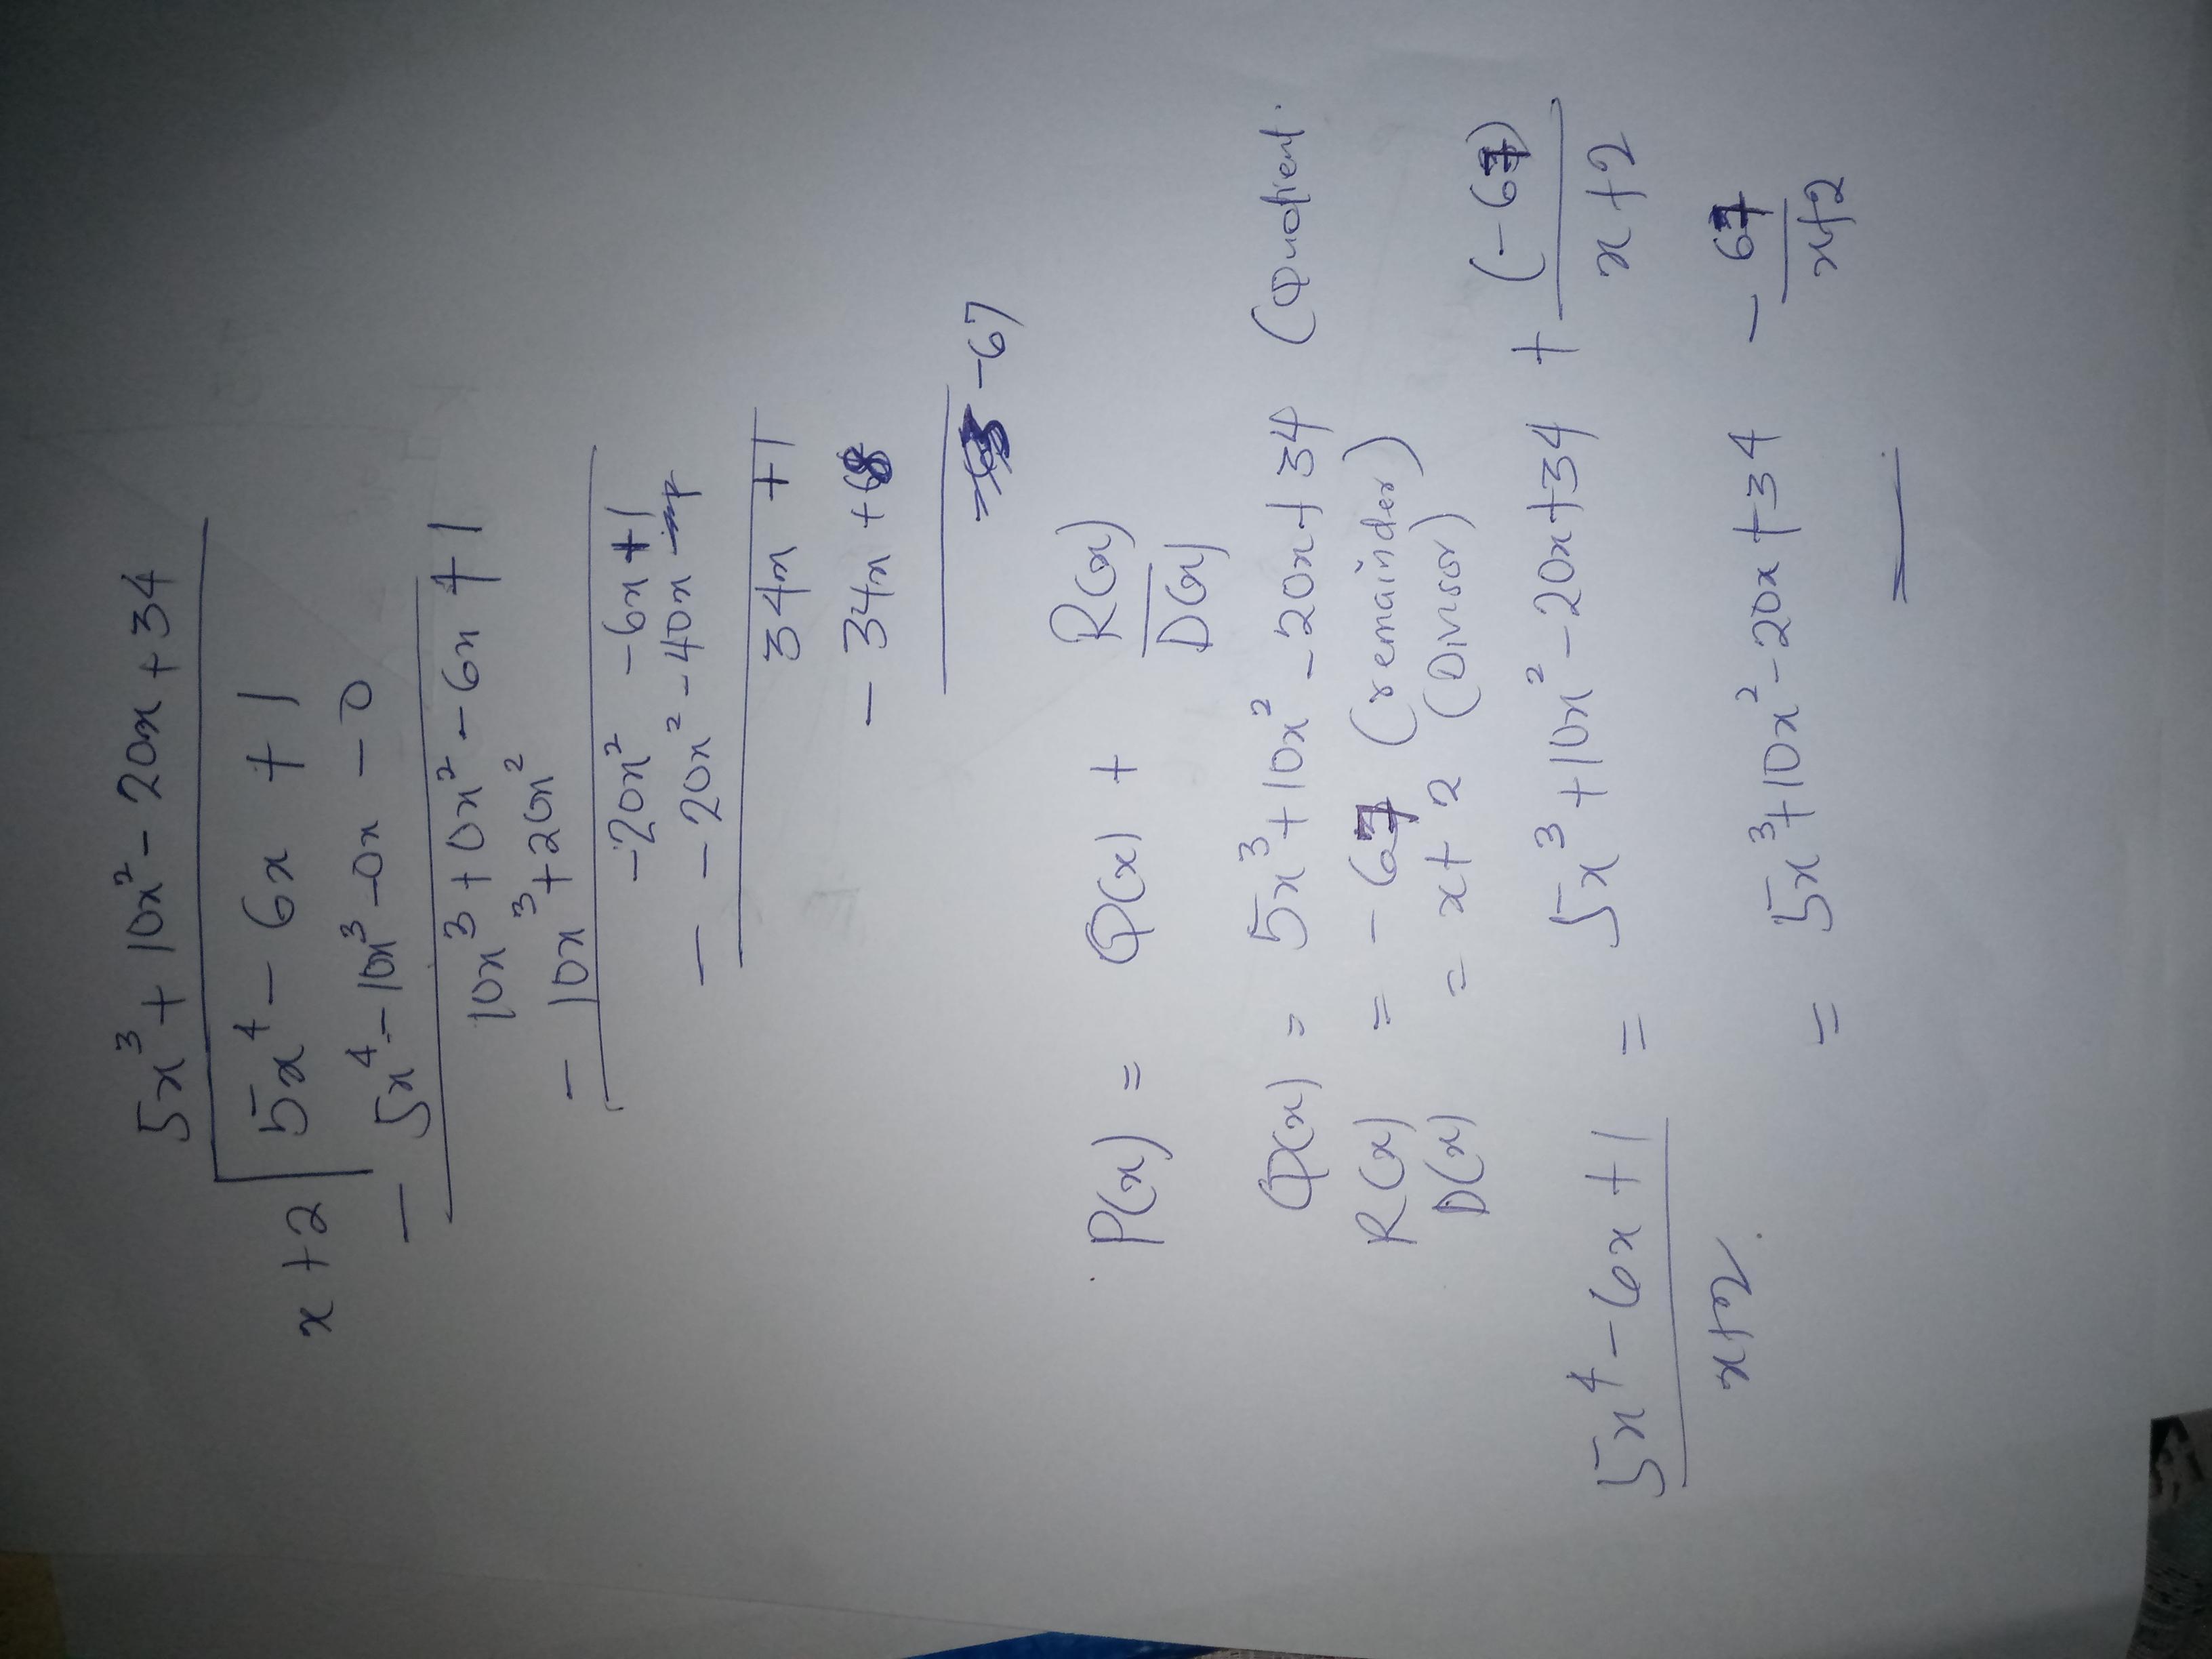 5x³ + 10x² - 20x + 34
x + 2 | 5x⁴ - 6x + 1
- 5x⁴ - 10x³ - 0x - 0
10x³ + 0x² - 6x + 1
- 10x³ + 20x²
-20x² - 6x + 1
- - 20x² - 40x
34x + 1
- 34x + 68
-67
P(x) = Q(x) + R(x)/D(x)
Q(x) = 5x³ + 10x² - 20x + 34 (Quotient.
R(x) = - 67 (remainder)
D(x) = x + 2 (Divisor)
5x⁴ - 6x + 1 / x + 2. = 5x³ + 10x² - 20x + 34 + (-67) / x + 2
= 5x³ + 10x² - 20x + 34 - 67 / x + 2